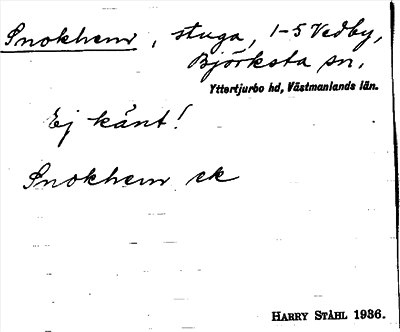 Snokhem, stuga, 1-5 Vedby,
Björksta sn,
Yttertjurbo hd, Västmanlands län.
Ej känt!
Snokhem ek
HARRY STÅHL 1936.